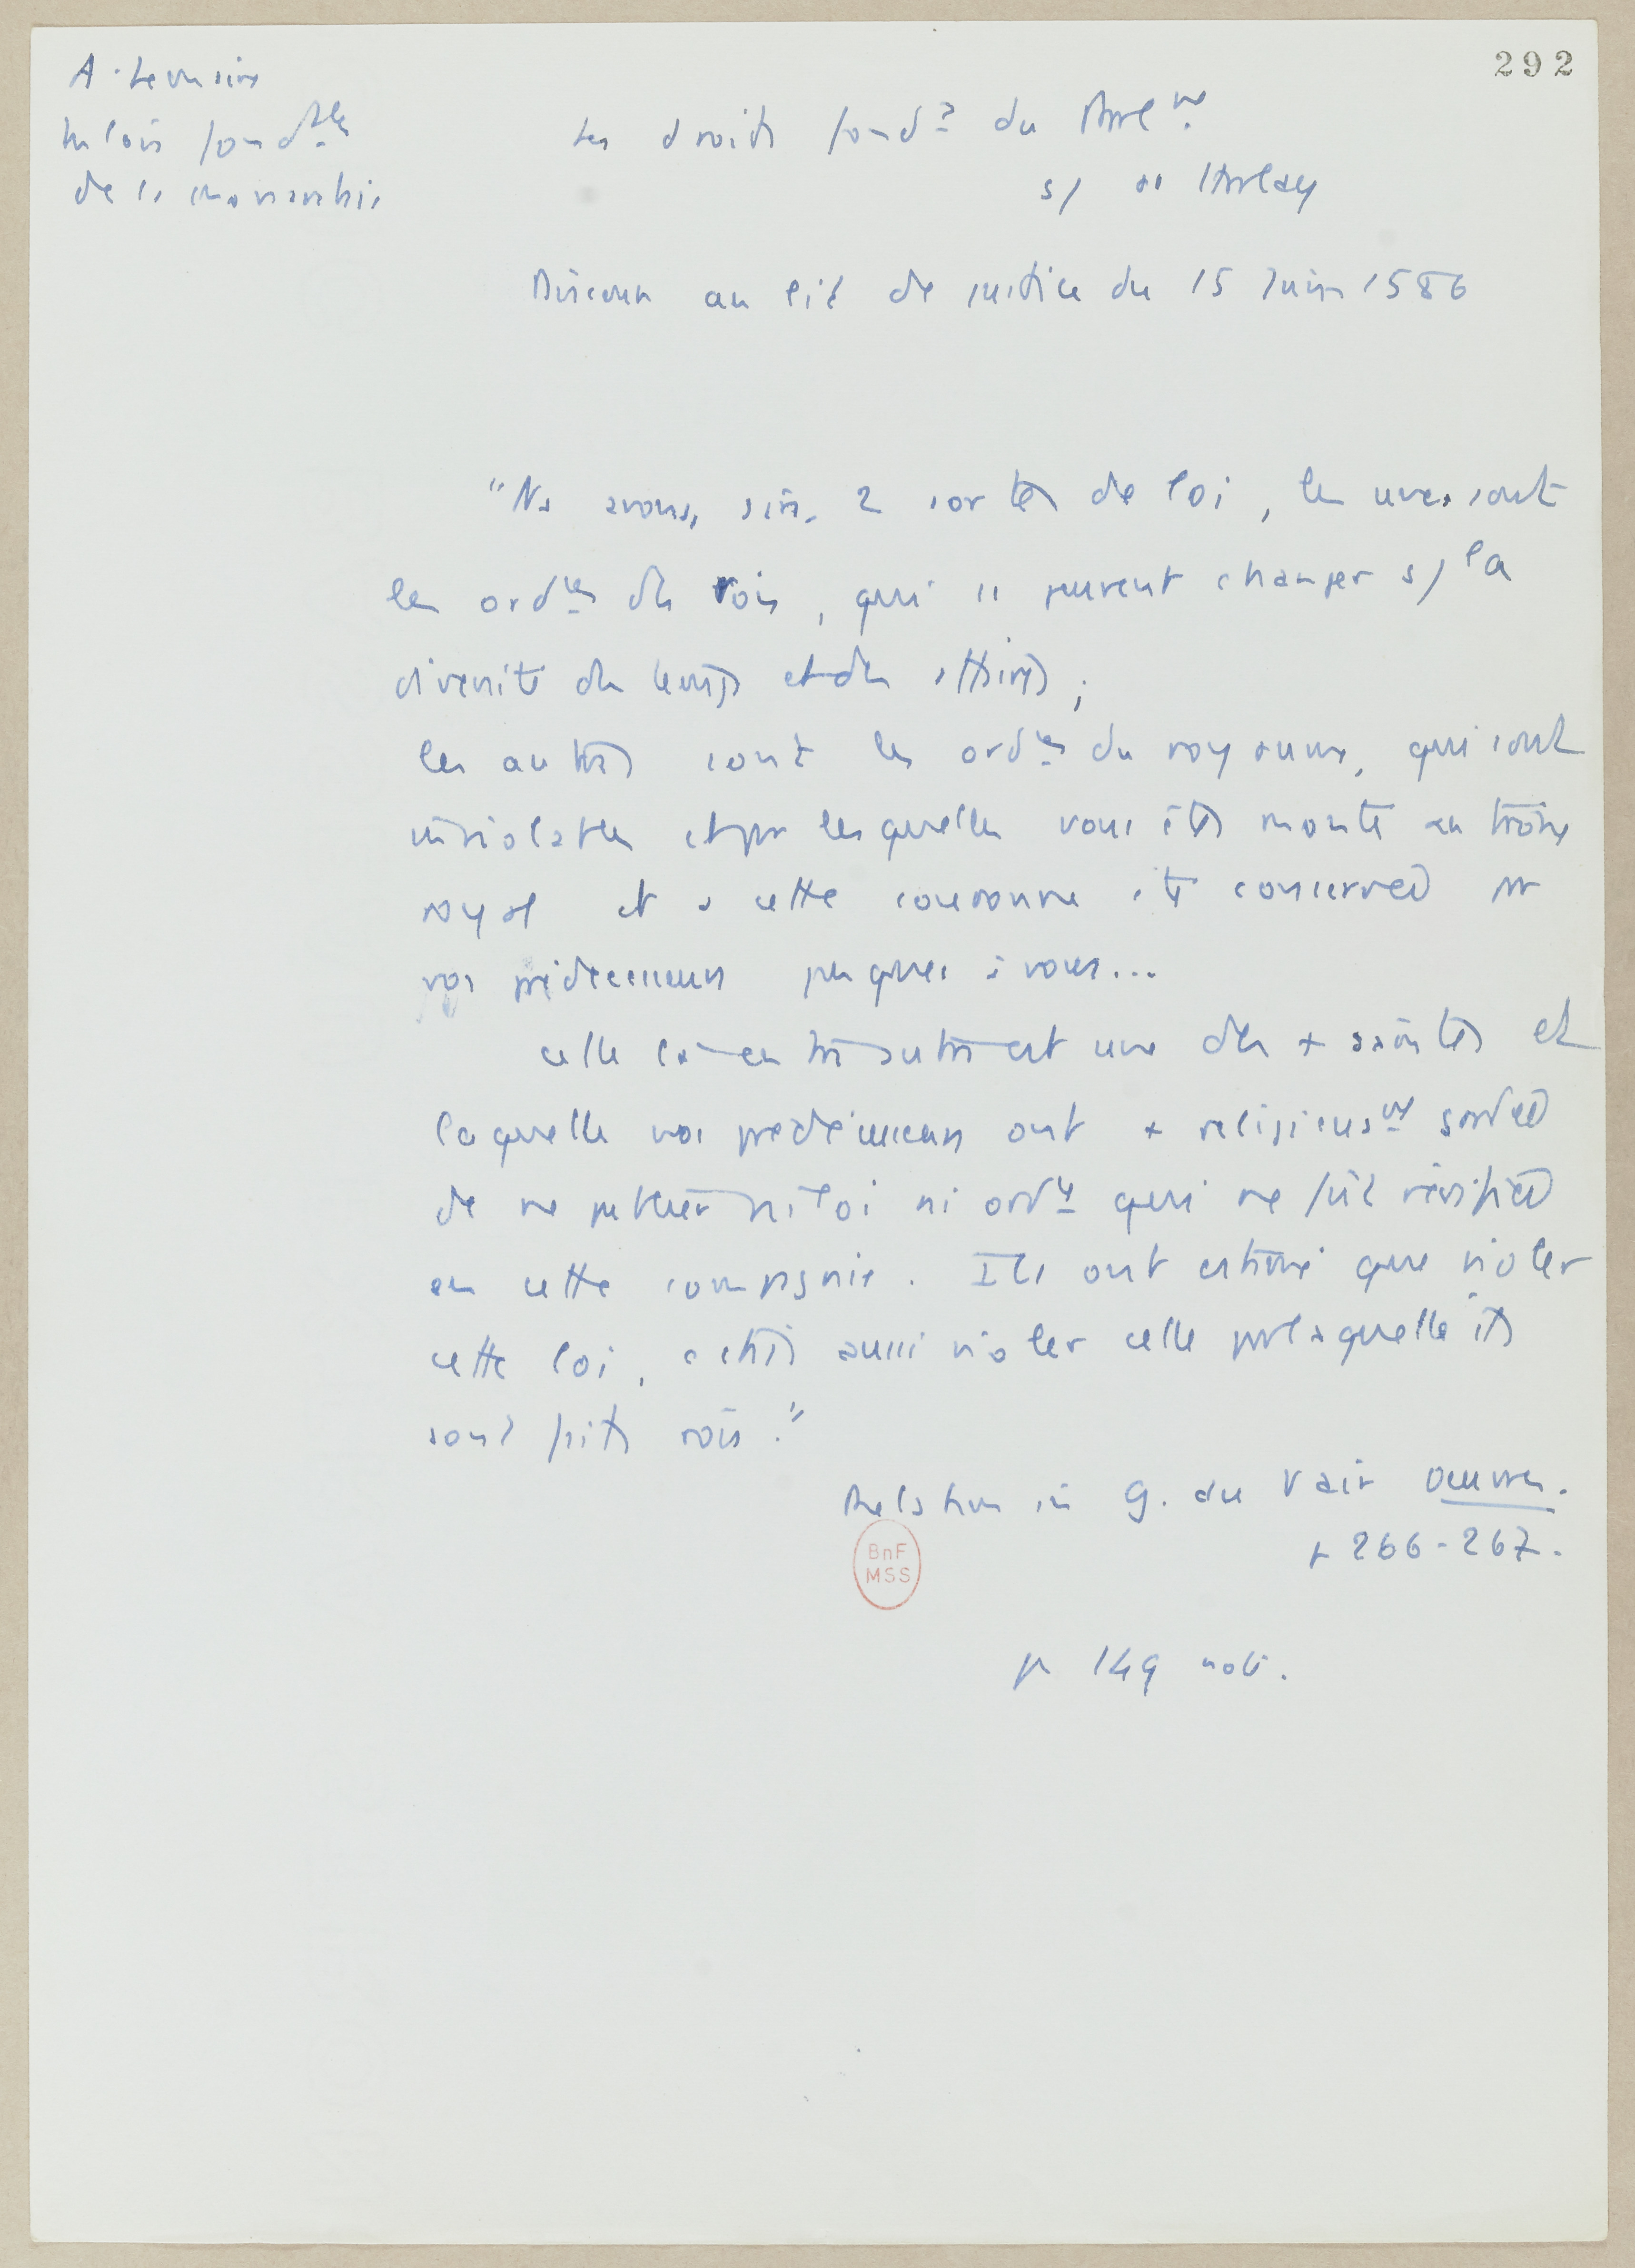 292
A. Lemaire
les lois fond^ales
de la monarchie
Les droits fond^x du Parl^nt.
s/ de Harlay
Discours au lit de justice du 15 Juin 1586
"Ns avons, sire, 2 sortes de loi, les unes sont
les ord^ces des rois, qui se peuvent changer s/ la
diversité des temps et des affaires ;
les autres sont les ord^ces du royaume, qui sont
inviolables et par lesquelles vous êtes monté au trône
royal et a cette couronne été conservée par
vos prédécesseurs jusques à vous...
celle là entre autres est une des + saintes et
laquelle vos prédécesseurs ont + religieus^nt gardée
de ne publier ni loi ni ord^ce qui ne fût vérifiée
en cette compagnie. Ils ont estimé que violer
cette loi, c'était aussi violer celle par laquelle ils
sont faits rois."
Relation in G. du Vair Oeuvres.
p 266-267.
BnF
MSS
p 149 note.